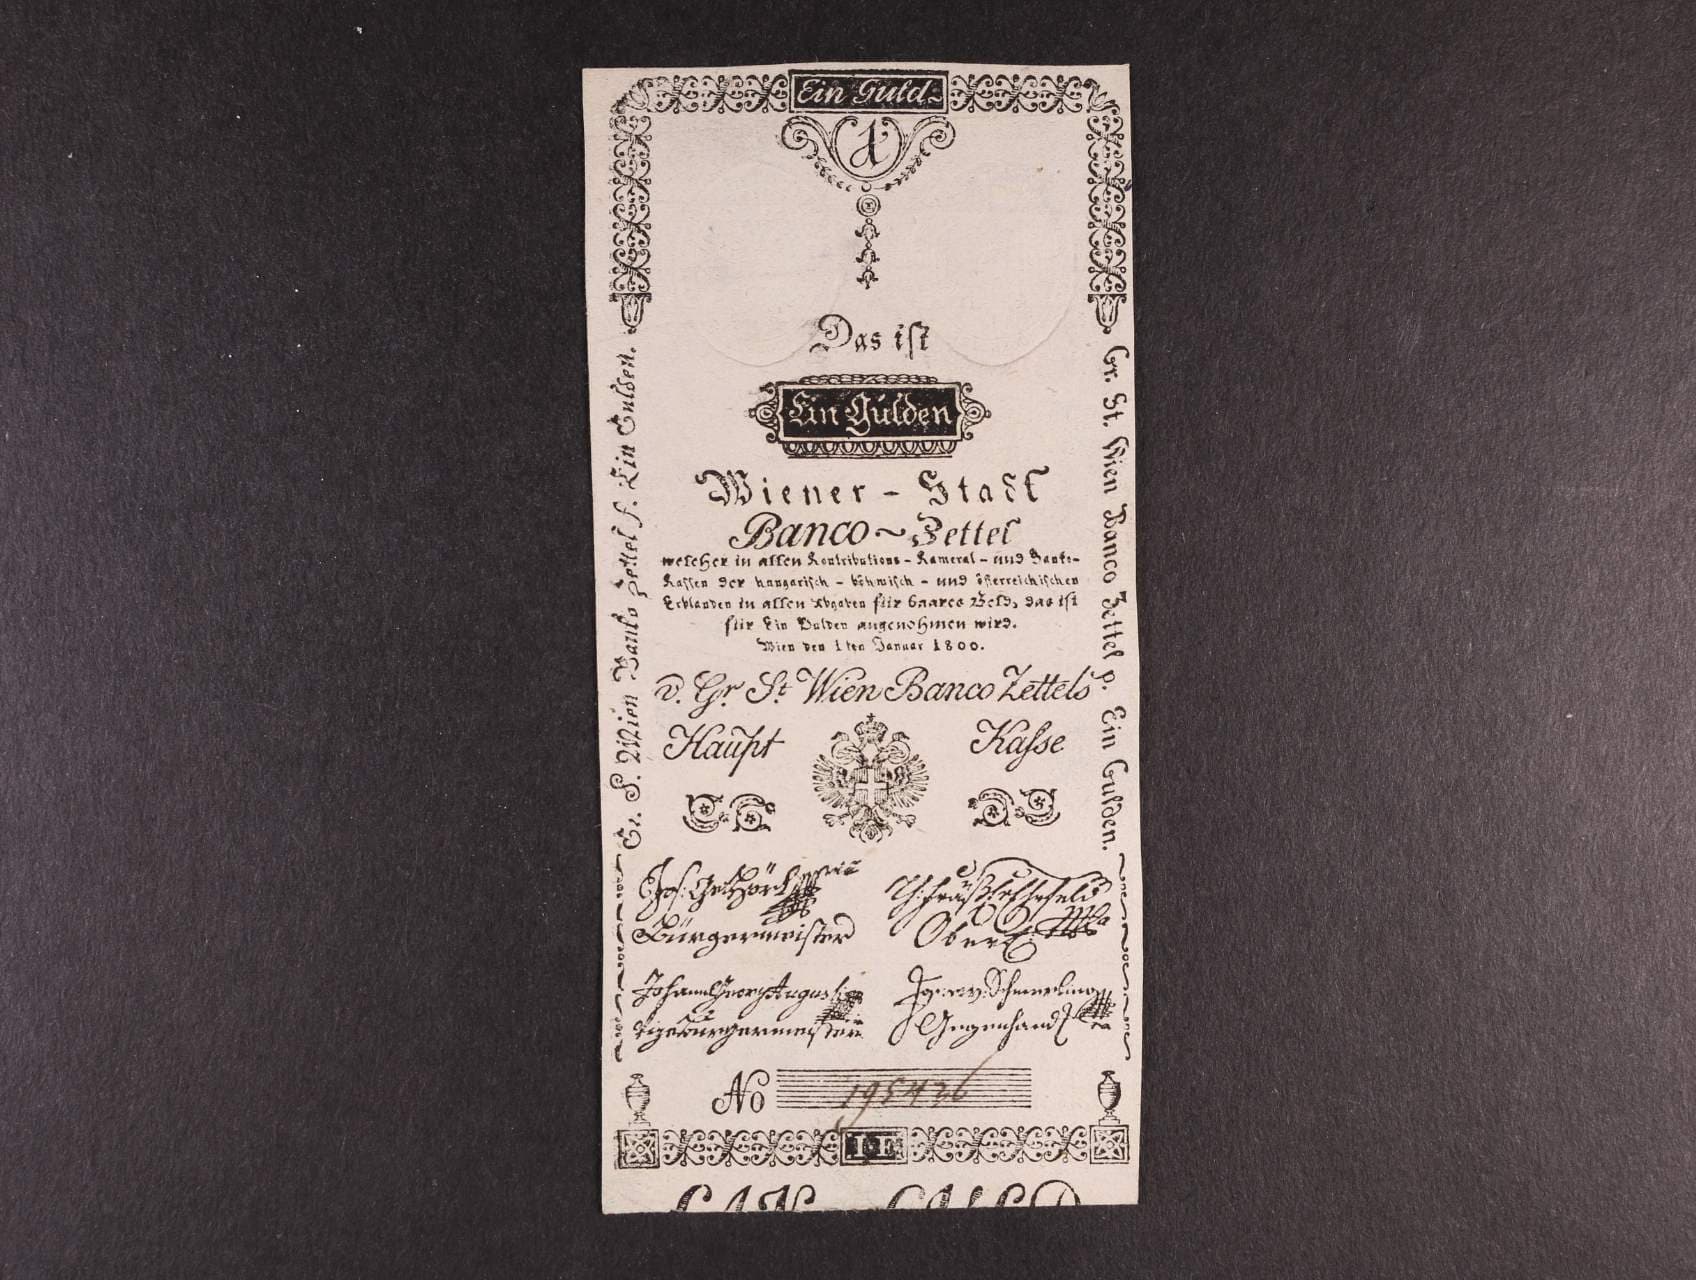 Ein Guld~
1
Das ist
Ein Gulden
Wiener - Stadt
Banco ~ Zettel
welcher in allen Kontributions - Kameral - und Banko-
Kassen der hungarisch - böhmisch - und österreichischen
Erblanden in allen Abgaben für baares Geld, das ist
für Ein Gulden angenohmen wird.
Wien den 1ten Januar 1800.
d. Gr. St. Wien Banco Zettels
Haupt Kasse
Gr. S. Wien Banko Zettel f. Ein Gulden.
Gr. St. Wien Banco Zettel p. Ein Gulden.
Jos:
Bürgermeister
Johann Georg Augusti
Vizebürgermeister
Jos: v: Schmerling
Gegenhand
No 195436
I·F